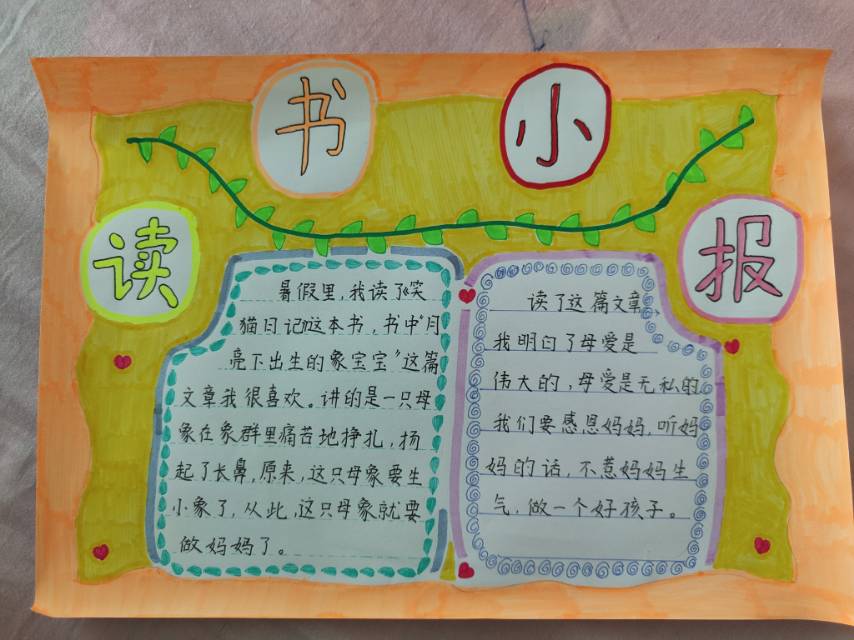 读书小报
暑假里，我读了《笑
猫日记》这本书，书中“月
亮下出生的象宝宝”这篇
文章我很喜欢。讲的是一只母
象在象群里痛苦地挣扎，扬
起了长鼻，原来，这只母象要生
小象了，从此，这只母象就要
做妈妈了。
读了这篇文章，
我明白了母爱是
伟大的，母爱是无私的
我们要感恩妈妈，听妈
妈的话，不惹妈妈生
气，做一个好孩子。